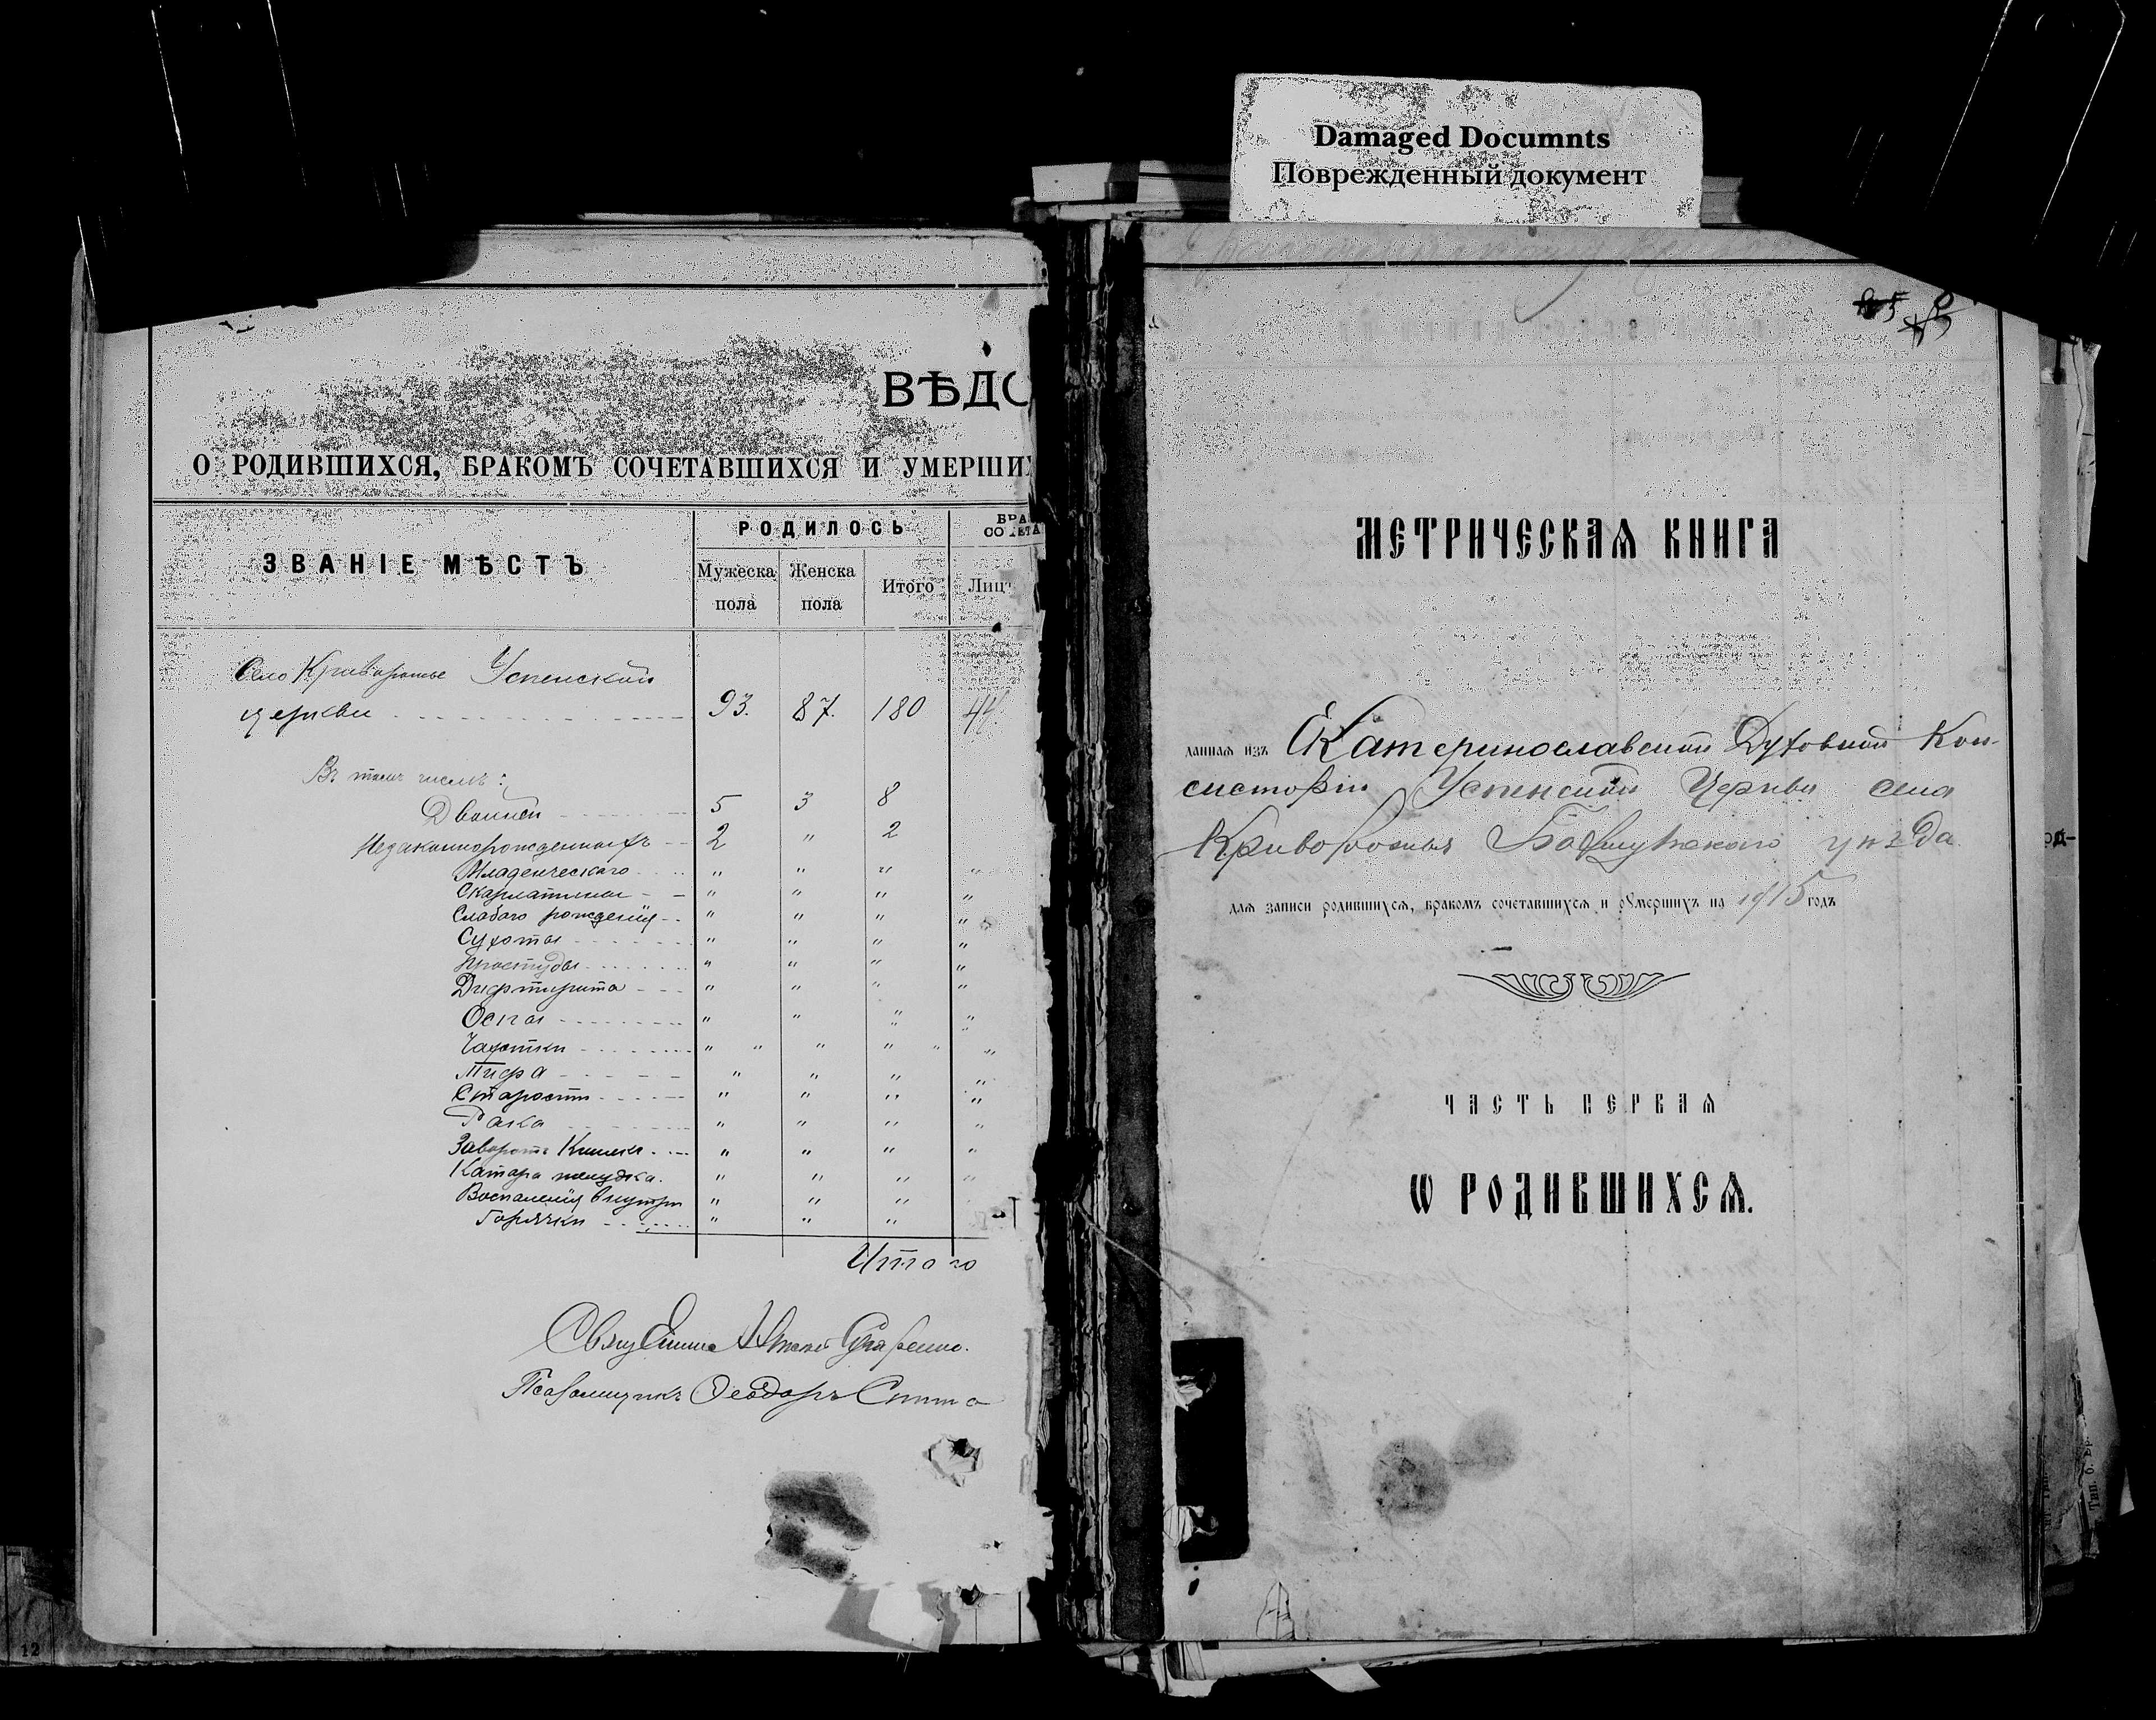 Damaged Documnts
Поврежденный документ
ВѢДО
О РОДИВШИХСЯ, БРАКОМЪ СОЧЕТАВШИХСЯ И УМЕРШИХ
ЗВАНІЕ МѢСТЪ
РОДИЛОСЬ
Мужеска пола
Женска пола
Итого
БРА
СОЧЕТА
Лицъ
Село Криворожье Успенской
церкви 93. 87. 180 44.
Въ томъ числѣ:
Двойней 5 3 8
Незаконнорожденныхъ 2 " 2
Младенческаго " " " "
Скарлатины " " " "
Слабаго рожденія " " " "
Сухоты " " " "
Простуды " " " "
Дифтирита " " " "
Оспы " " " "
Чахотки " " " " " "
Тифа " " " "
Старости " " " "
Рака " " " "
Заворотъ Кишекъ " " " "
Катара желудка. " " " "
Воспаленія внутри " " "
Горячки " " "
Итого
Псаломщикъ Ѳеодоръ
12
МЕТРИЧЕСКАѦ КНИГА
даннаѧ изъ Екатеринославской Духовной Кон-
систоріи Успенской Церкви села
Криворожья Бахмутскаго уѣзда
длѧ записи родившихсѧ, бракомъ сочетавшихсѧ и ѹмершихъ на 1915 годъ
ЧАСТЬ ПЕРВАѦ
Ѡ РОДИВШИХСѦ.